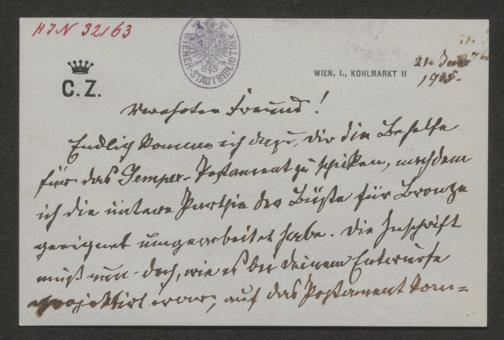 HIN 32163
WIENER STADTBIBLIOTHEK
C. Z.
WIEN, I., KOHLMARKT 11
21.
19
Verehrter Freund!
Endlich komme ich dazu, dir die Behelfe
für das Semper-Postament zu schicken, nachdem
ich die untere Parthie der Büste für Bronze
geeignet umgearbeitet habe. Die Inschrift
muß nun doch, wie es bei deinem Entwurfe
projektirt war, auf das Postament kom=